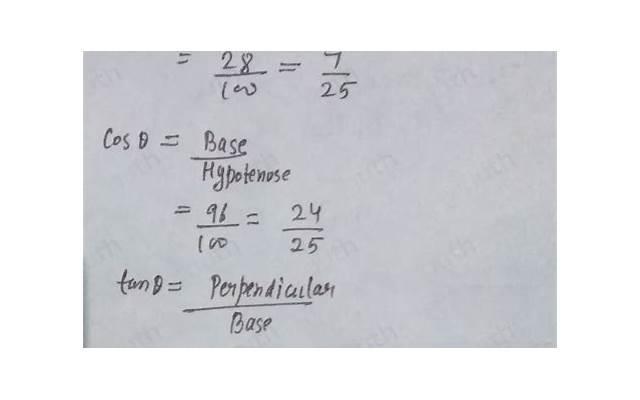 = 28/100 = 7/25
Cos θ = Base/Hypotenose
= 96/100 = 24/25
tanθ = Perpendicular/Base